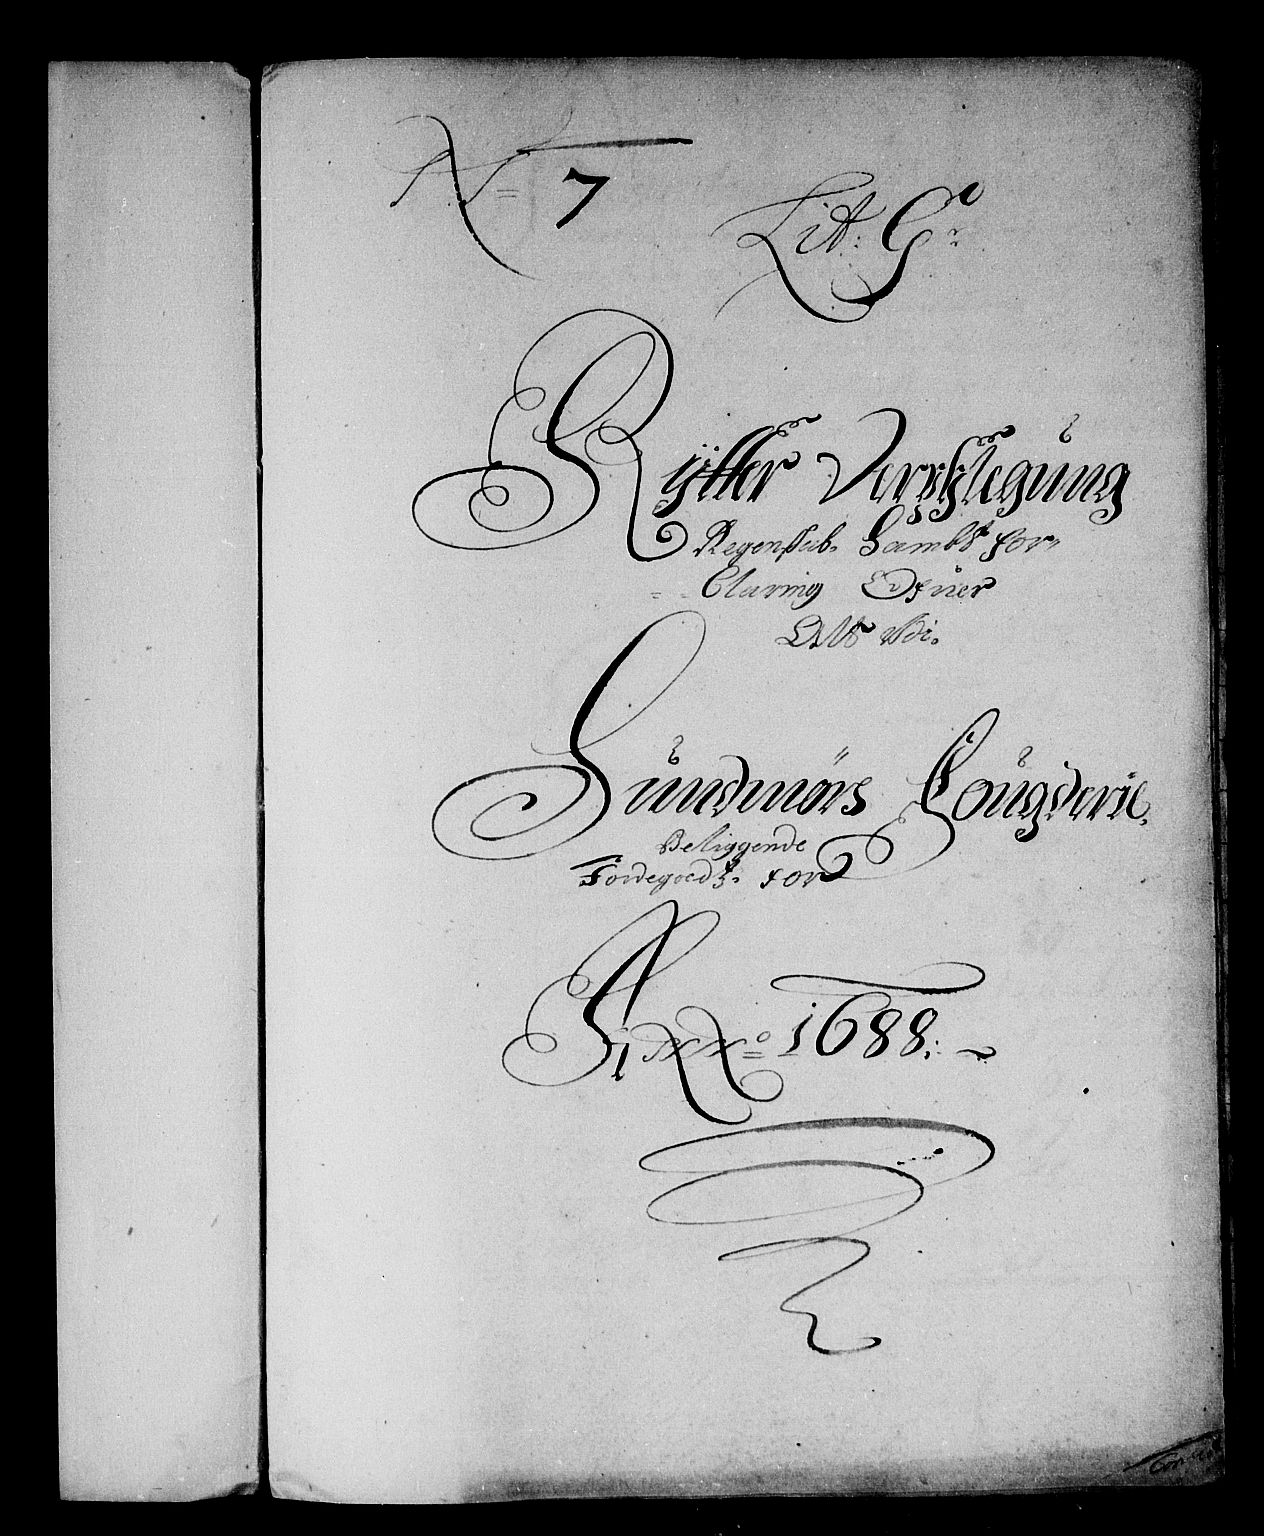 N = 7
Lit: G:
Rÿtter Verpflegŭng
Regenskab. Sambt for-
Claring Efter
Sŭndmørs Fougderie
Beliggende
Jordegoedß. for
Anno 1688.